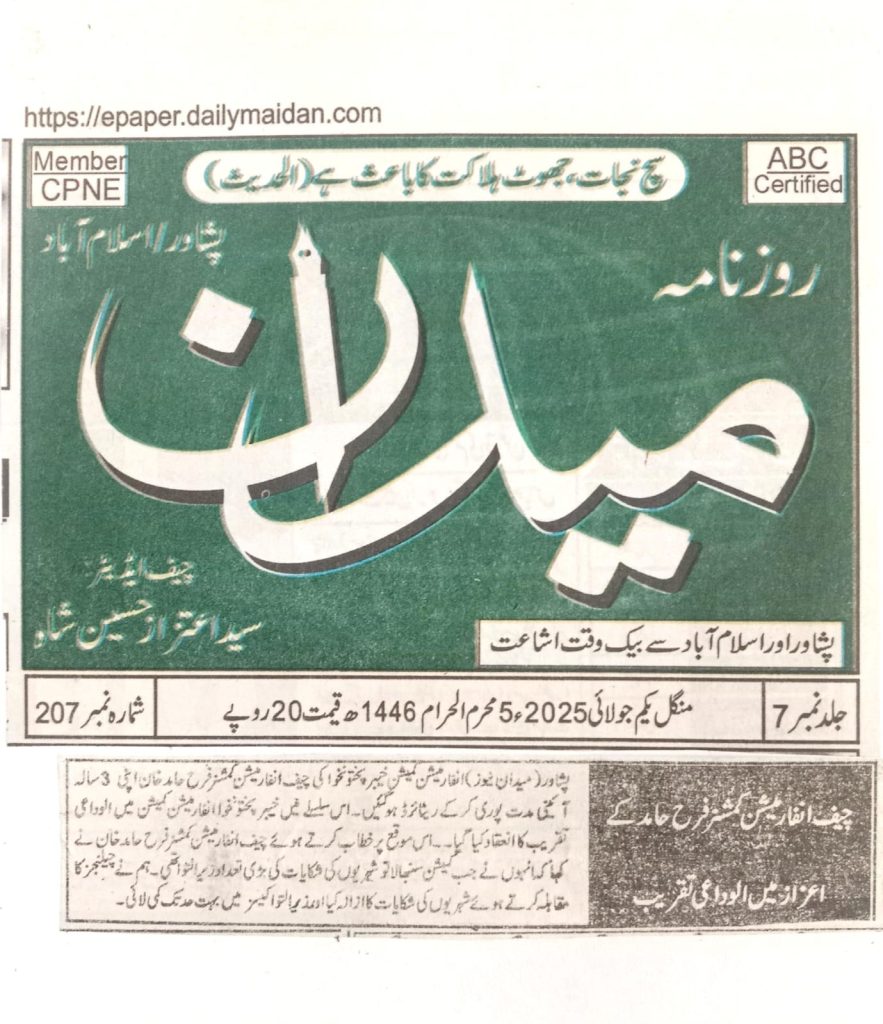 https://epaper.dailymaidan.com
Member
CPNE
سچ نجات، جھوٹ ہلاکت کا باعث ہے (الحدیث)
ABC
Certified
پشاور/اسلام آباد
روزنامہ
میدان
چیف ایڈیٹر
سید اعتزاز حسین شاہ
پشاور اور اسلام آباد سے بیک وقت اشاعت
جلد نمبر 7
منگل یکم جولائی 2025ء 5 محرم الحرام 1446ھ قیمت 20 روپے
شمارہ نمبر 207
چیف انفارمیشن کمشنر فرح حامد کے
اعزاز میں الوداعی تقریب
پشاور (میدان نیوز) انفارمیشن کمیشن خیبر پختونخوا کی چیف انفارمیشن کمشنر فرح حامد خان اپنی 3 سالہ
آئینی مدت پوری کر کے ریٹائرڈ ہو گئیں۔ اس سلسلے میں خیبر پختونخوا انفارمیشن کمیشن میں الوداعی
تقریب کا انعقاد کیا گیا۔ اس موقع پر خطاب کرتے ہوئے چیف انفارمیشن کمشنر فرح حامد خان نے
کہا کہ انہوں نے جب کمیشن سنبھالا تو شہریوں کی شکایات کی بڑی تعداد زیر التوا تھی۔ ہم نے چیلنجز کا
مقابلہ کرتے ہوئے شہریوں کی شکایات کا ازالہ کیا اور زیر التوا کیسز میں بہت حد تک کمی لائی۔